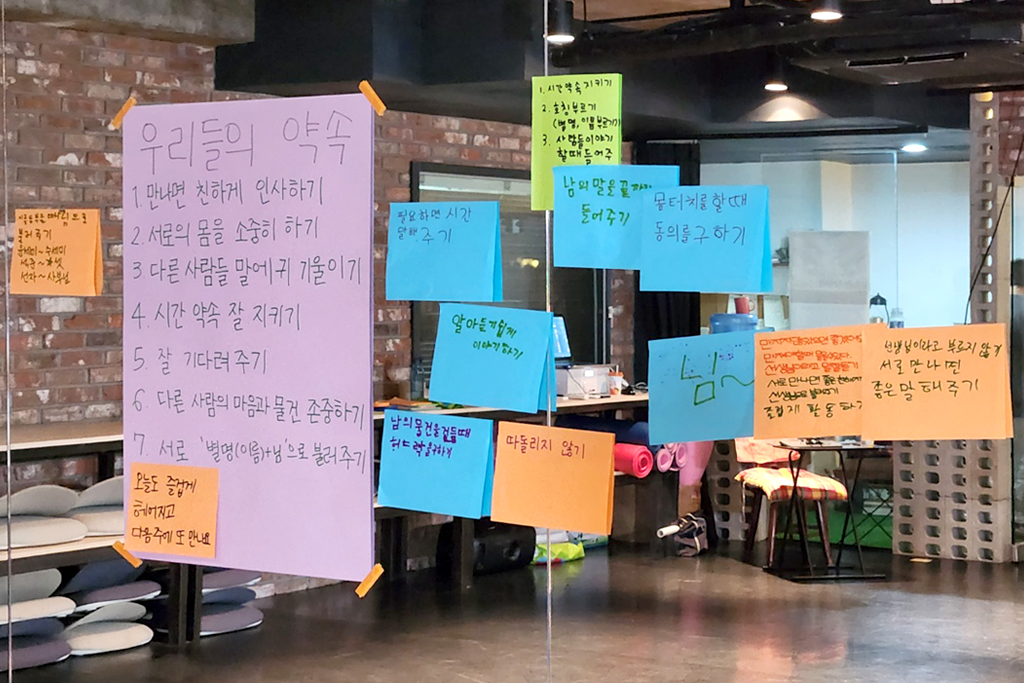 우리들의 약속
1. 만나면 친하게 인사하기
2. 서로의 몸을 소중히 하기
3 다른 사람들 말에 귀 기울이기
4. 시간 약속 잘 지키기
5. 잘 기다려 주기
6. 다른 사람의 마음과 물건 존중하기
7. 서로 '별명(이름)+님'으로 불러주기
오늘도 즐겁게
헤어지고
다음주에 또 만나요
부르기
선자~사부님
필요하면 시간
말해 주기
1. 시간약속 지키기
2. 호칭부르기
(별명, 이름부르기)
3. 사람들이야기
할때 들어주
남의 말을 끝까지
들어주기
몸터치를 할때
동의를 구하기
알아듣기쉽게
이야기하기
남의 물건을 만질때
허락을구하기
따돌리지 않기
님
서로 만나면
즐겁게 활동 하기
선생님이라고 부르지 않기
서로 만나면
좋은말 해주기